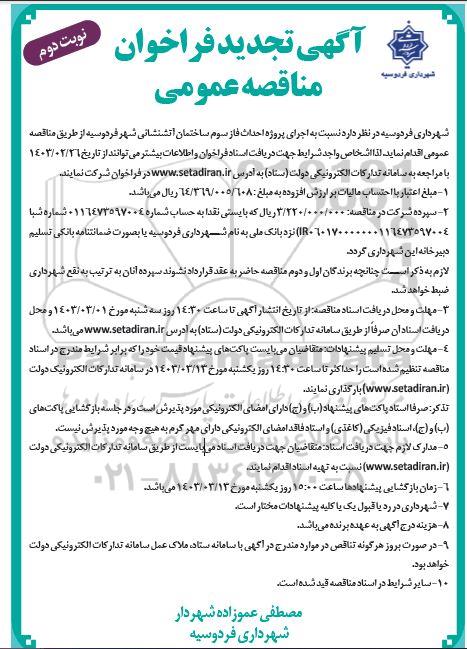 نوبت دوم
آگهی تجدید فراخوان
مناقصه عمومی
شهرداری فردوسیه
شهرداری فردوسیه در نظر دارد نسبت به اجرای پروژه احداث فاز سوم ساختمان آتشنشانی شهر فردوسیه از طریق مناقصه
عمومی اقدام نماید. لذا اشخاص واجد شرایط جهت دریافت اسناد فراخوان و اطلاعات بیشتر می توانند از تاریخ ۱۴۰۳/۰۲/۲۶
با مراجعه به سامانه تدارکات الکترونیکی دولت (ستاد) به آدرس www.setadiran.ir در فراخوان شرکت نمایند.
۱- مبلغ اعتبار با احتساب مالیات بر ارزش افزوده به مبلغ: ۶۴/۳۶۹/۰۰۵/۶۰۸ ریال می‌باشد.
۲- سپرده شرکت در مناقصه: ۳/۲۲۰/۰۰۰/۰۰۰ ریال که بایستی نقدا به حساب شماره ۰۱۱۶۴۷۳۵۹۷۰۰۴ شماره شبا
(IR۰۶۰۱۷۰۰۰۰۰۰۰۱۱۶۴۷۳۵۹۷۰۰۴) نزد بانک ملی به نام شهرداری فردوسیه یا بصورت ضمانتنامه بانکی تسلیم
دبیرخانه این شهرداری گردد.
لازم به ذکر است چنانچه برندگان اول و دوم مناقصه حاضر به عقد قرارداد نشوند سپرده آنان به ترتیب به نفع شهرداری
ضبط خواهد شد.
۳- مهلت و محل دریافت اسناد مناقصه: از تاریخ انتشار آگهی تا ساعت ۱۴:۳۰ روز سه شنبه مورخ ۱۴۰۳/۰۳/۰۱ و محل
دریافت اسناد آن صرفا از طریق سامانه تدارکات الکترونیکی دولت (ستاد) به آدرس www.setadiran.ir می‌باشد.
۴- مهلت و محل تسلیم پیشنهادات: متقاضیان می‌بایست پاکت‌های پیشنهاد قیمت خود را که برابر شرایط مندرج در اسناد
مناقصه تنظیم شده است را حداکثر تا ساعت ۱۴:۳۰ روز یکشنبه مورخ ۱۴۰۳/۰۳/۱۳ در سامانه تدارکات الکترونیک دولت
(www.setadiran.ir) بارگذاری نمایند.
تذکر: صرفا اسناد پاکت‌های پیشنهاد (ب) و (ج) دارای امضای الکترونیکی مورد پذیرش است و در جلسه بازگشایی پاکت‌های
(ب) و (ج)، اسناد فیزیکی (کاغذی) و اسناد فاقد امضای الکترونیکی دارای مهر گرم به هیچ وجه مورد پذیرش نیست.
۵- مدارک لازم جهت دریافت اسناد: متقاضیان جهت دریافت اسناد می‌بایست از طریق سامانه تدارکات الکترونیکی دولت
(www.setadiran.ir) نسبت به تهیه اسناد اقدام نمایند.
۶- زمان بازگشایی پیشنهادها ساعت ۱۵:۰۰ روز یکشنبه مورخ ۱۴۰۳/۰۳/۱۳ می‌باشد.
۷- شهرداری در رد یا قبول یک یا کلیه پیشنهادات مختار است.
۸- هزینه درج آگهی به عهده برنده می‌باشد.
۹- در صورت بروز هرگونه تناقص در موارد مندرج در آگهی با سامانه ستاد، ملاک عمل سامانه تدارکات الکترونیکی دولت
خواهد بود.
۱۰- سایر شرایط در اسناد مناقصه قید شده است.
مصطفی عموزاده شهردار
شهرداری فردوسیه